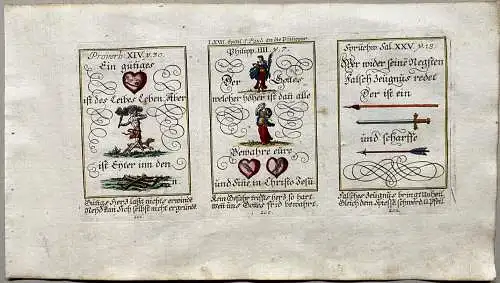 Proverb. XIV. v. 30.
Ein gütiges
ist des Leibes Leben, Aber
ist Eyter inn den
n.
Gütigs Hertz lasst nichts
Neyd kan sich selbst nicht ergründt.
LXVIII. Epist. S. Pauli An die Philipper.
Philipp. IIII. v. 7.
Der Gottes
welcher höher ist dañ alle
Bewahre eure
und Siñe in Christo Jesu
Kein Gefahr trifft hertz so hart,
Weil uns Gottes frid bewahrt.
Sprüchw. Sal. XXV. v. 18.
Wer wider seinē Negsten
Falsch Zeugnüs redet
Der ist ein
und scharffe
Falsches Zeugnüs bringt Unheil,
Gleich dem Spiesse, schwerd, u. Pfeil.